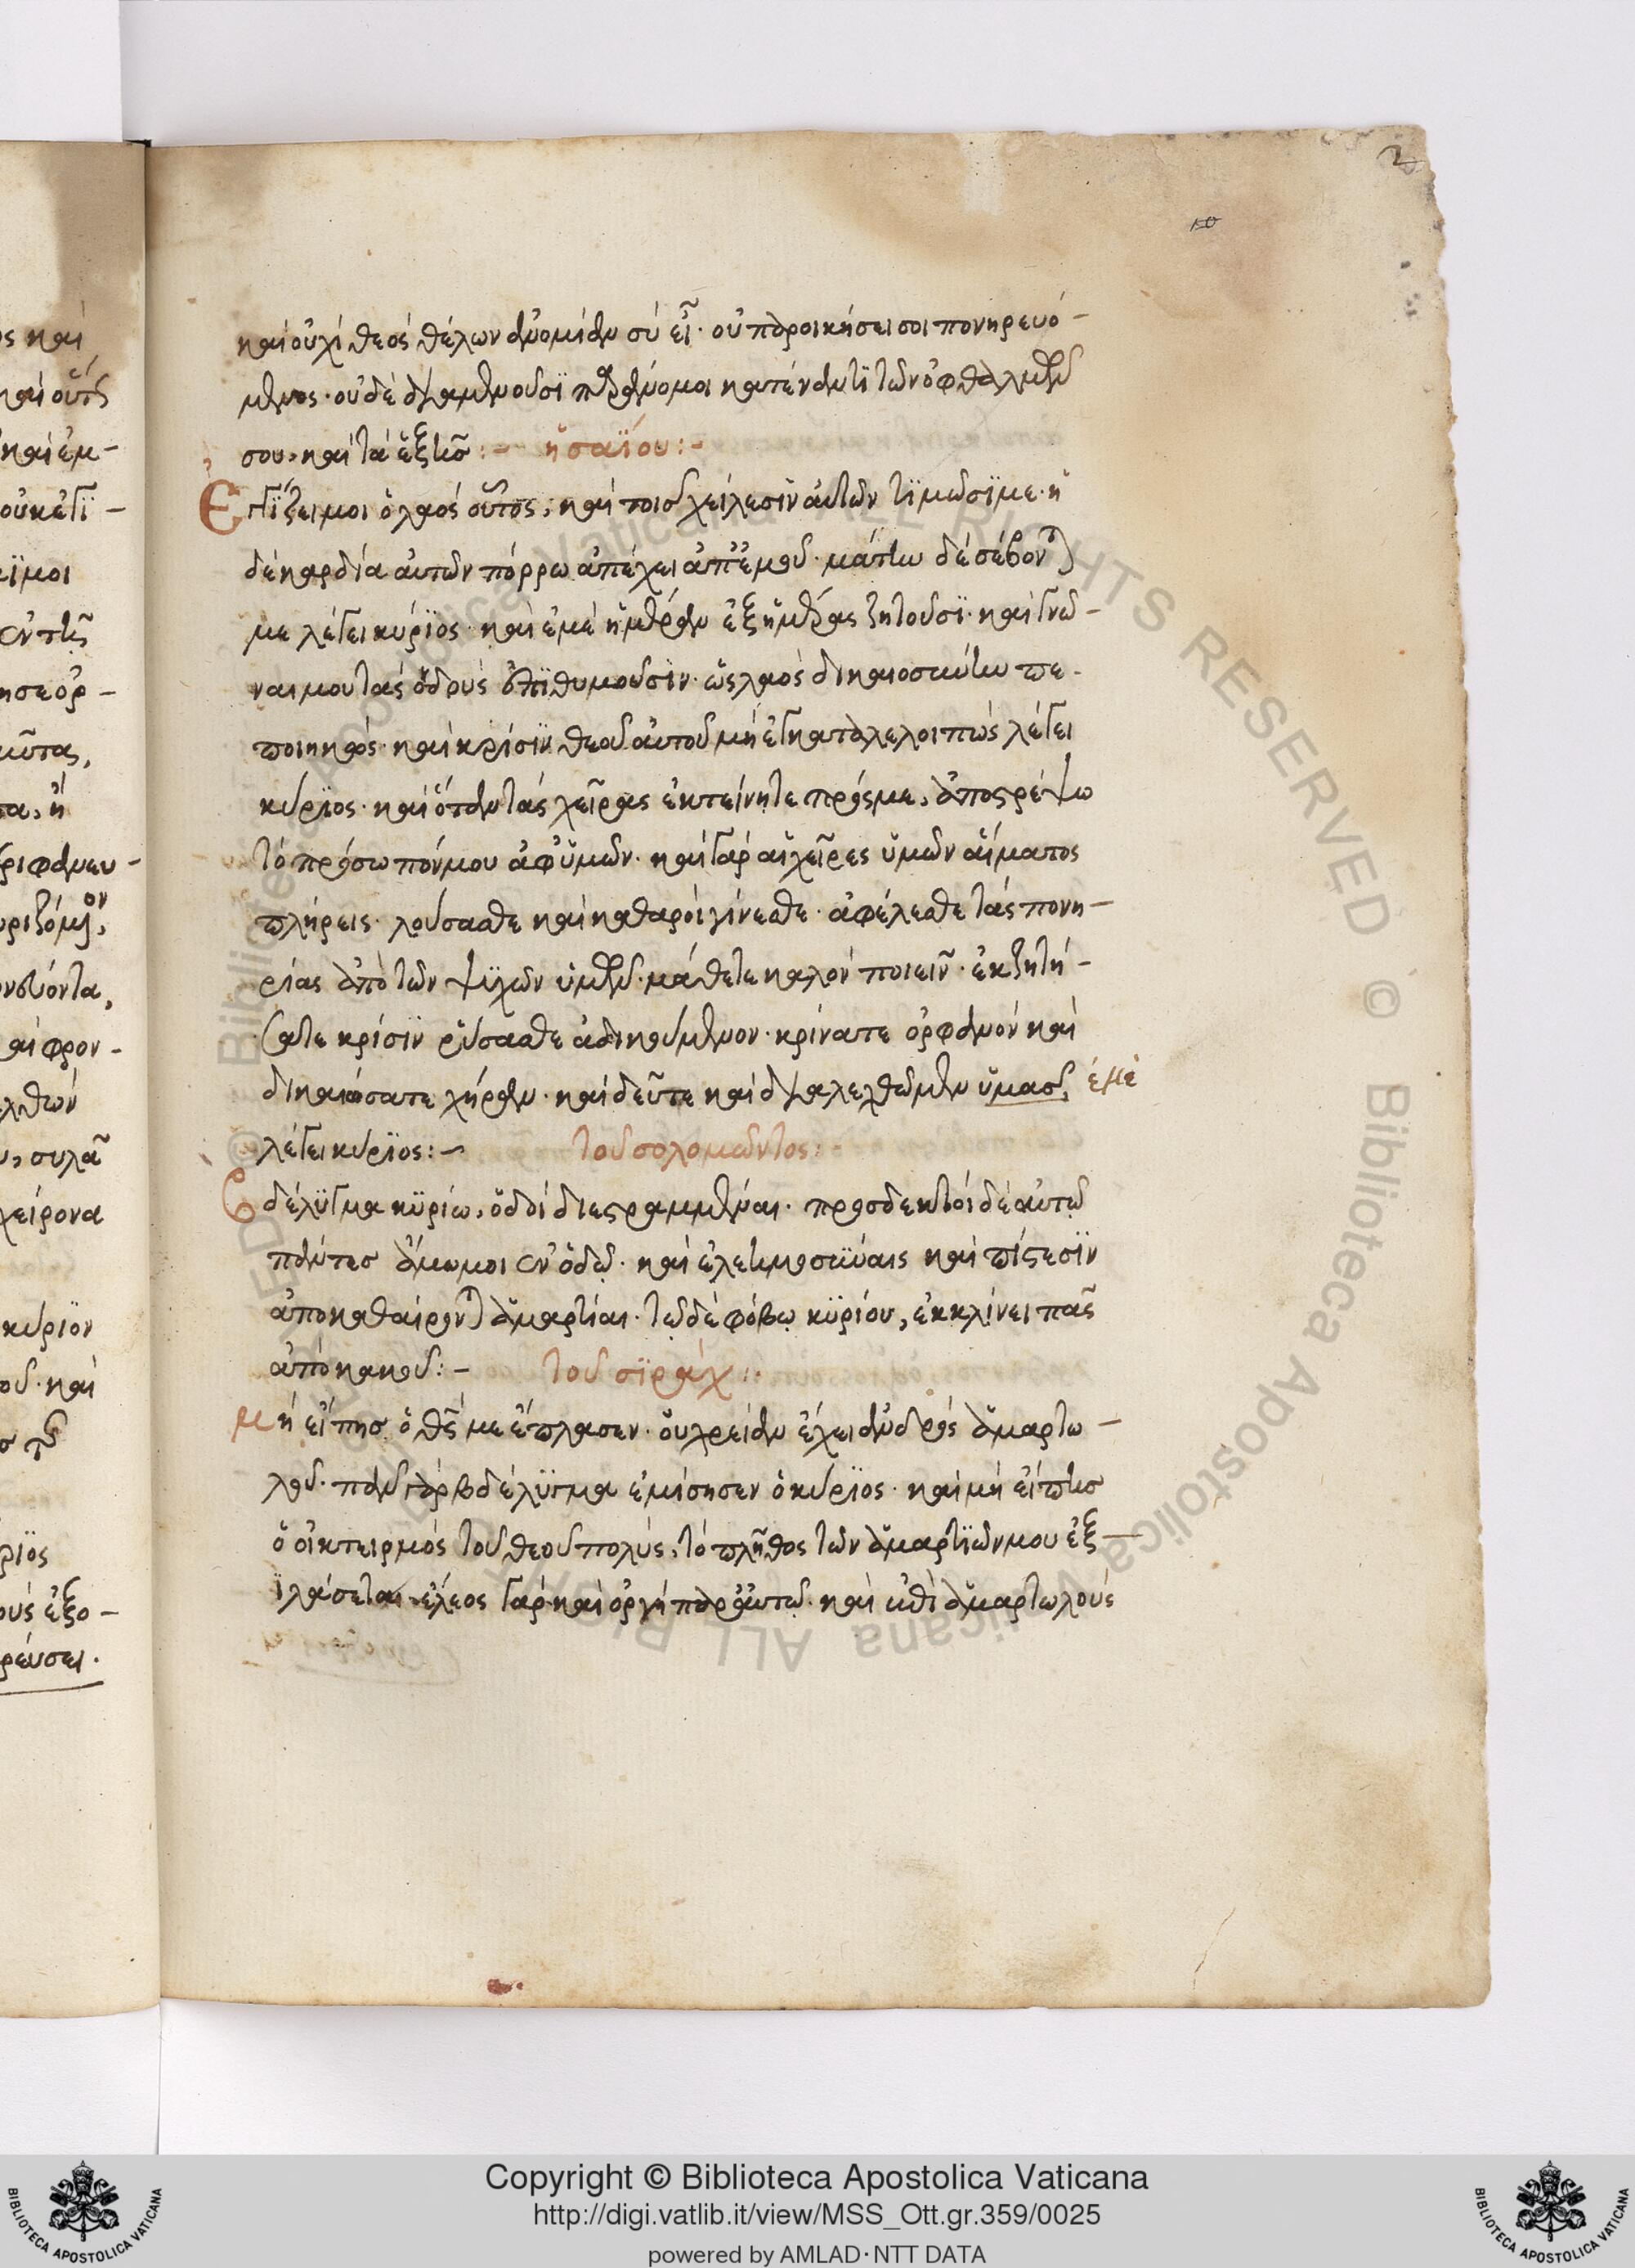 2
10
καὶ οὐχὶ θεὸς θέλων ἀνομίαν σὺ εἶ· οὐ παροικήσει σοι πονηρευό-
μενος· οὐδὲ διαμενοῦσϊ παράνομοι κατέναντϊ τῶν ὀφθαλμῶν
σου, καὶ τὰ ἑξῆς :- ἡσαΐου :-
Ἐγγΐζει μοι ὁ λαὸς οὗτος, καὶ τοῖσ χείλεσϊν αὐτῶν τϊμῶσϊ με· ἡ
δὲ καρδία αὐτῶν πόρρω ἀπέχει ἀπ' ἐμοῦ· μάτην δὲ σέβονται
με λέγει κύρϊος· καὶ ἐμὲ ἡμέραν ἐξ ἡμέρας ζητοῦσϊ· καὶ γνῶ-
ναι μου τὰς ὁδοὺς ἐπϊθυμοῦσϊν· ὡς λαὸς δικαιοσύνην πε-
ποιηκὸς· καὶ κρίσϊν θεοῦ αὐτοῦ μὴ ἐγκαταλελοιπὼς λέγει
κύρϊος· καὶ ὅταν τὰς χεῖρας ἐκτείνητε πρός με, ἀποστρέψω
τὸ πρόσωπόν μου ἀφ' ὑμῶν· καὶ γὰρ αἱ χεῖρες ὑμῶν αἵματος
πλήρεις· λούσασθε καὶ καθαροὶ γίνεσθε· ἀφέλεσθε τὰς πονη-
ρίας ἀπὸ τῶν ψυχῶν ὑμῶν· μάθετε καλὸν ποιεῖν· ἐκζητή-
σατε κρίσϊν ῥύσασθε ἀδικούμενον· κρίνατε ὀρφανὸν καὶ
δικαιώσατε χήραν· καὶ δεῦτε καὶ διαλεχθῶμεν ὑμασ, ἐμὲ
λέγει κύρϊος :- τοῦ σολομῶντος :
Βδέλϋγμα κϋρίω, ὁδοὶ διεστραμμέναι· προσδεκτοὶ δὲ αὐτῷ
πάντεσ ἄμωμοι ἐν ὁδῷ· καὶ ἐλεημοσύναις καὶ πίστεσϊν
ἀποκαθαίρονται ἁμαρτίαι· τῷ δὲ φόβῳ κϋρίου, ἐκκλίνει πᾶς
ἀπὸ κακοῦ :- τοῦ σϊράχ :·
Μὴ εἴπησ ὁ θεός με ἔπλασεν· οὐ χρείαν ἔχει ἀνδρὸς ἁμαρτω-
λοῦ· πᾶν γὰρ βδέλϋγμα ἐμίσησεν ὁ κύρϊος· καὶ μὴ εἴπησ
ὁ οἰκτειρμὸς τοῦ θεοῦ πολὺς, τὸ πλῆθος τῶν ἁμαρτϊῶν μου ἐξ-
ϊλάσεται· ἔλεος γὰρ καὶ ὀργὴ παρ' αὐτῷ· καὶ ἐπὶ ἁμαρτωλοὺς
Copyright © Biblioteca Apostolica Vaticana
http://digi.vatlib.it/view/MSS_Ott.gr.359/0025
powered by AMLAD·NTT DATA
BIBLIOTECA APOSTOLICA VATICANA
BIBLIOTECA APOSTOLICA VATICANA